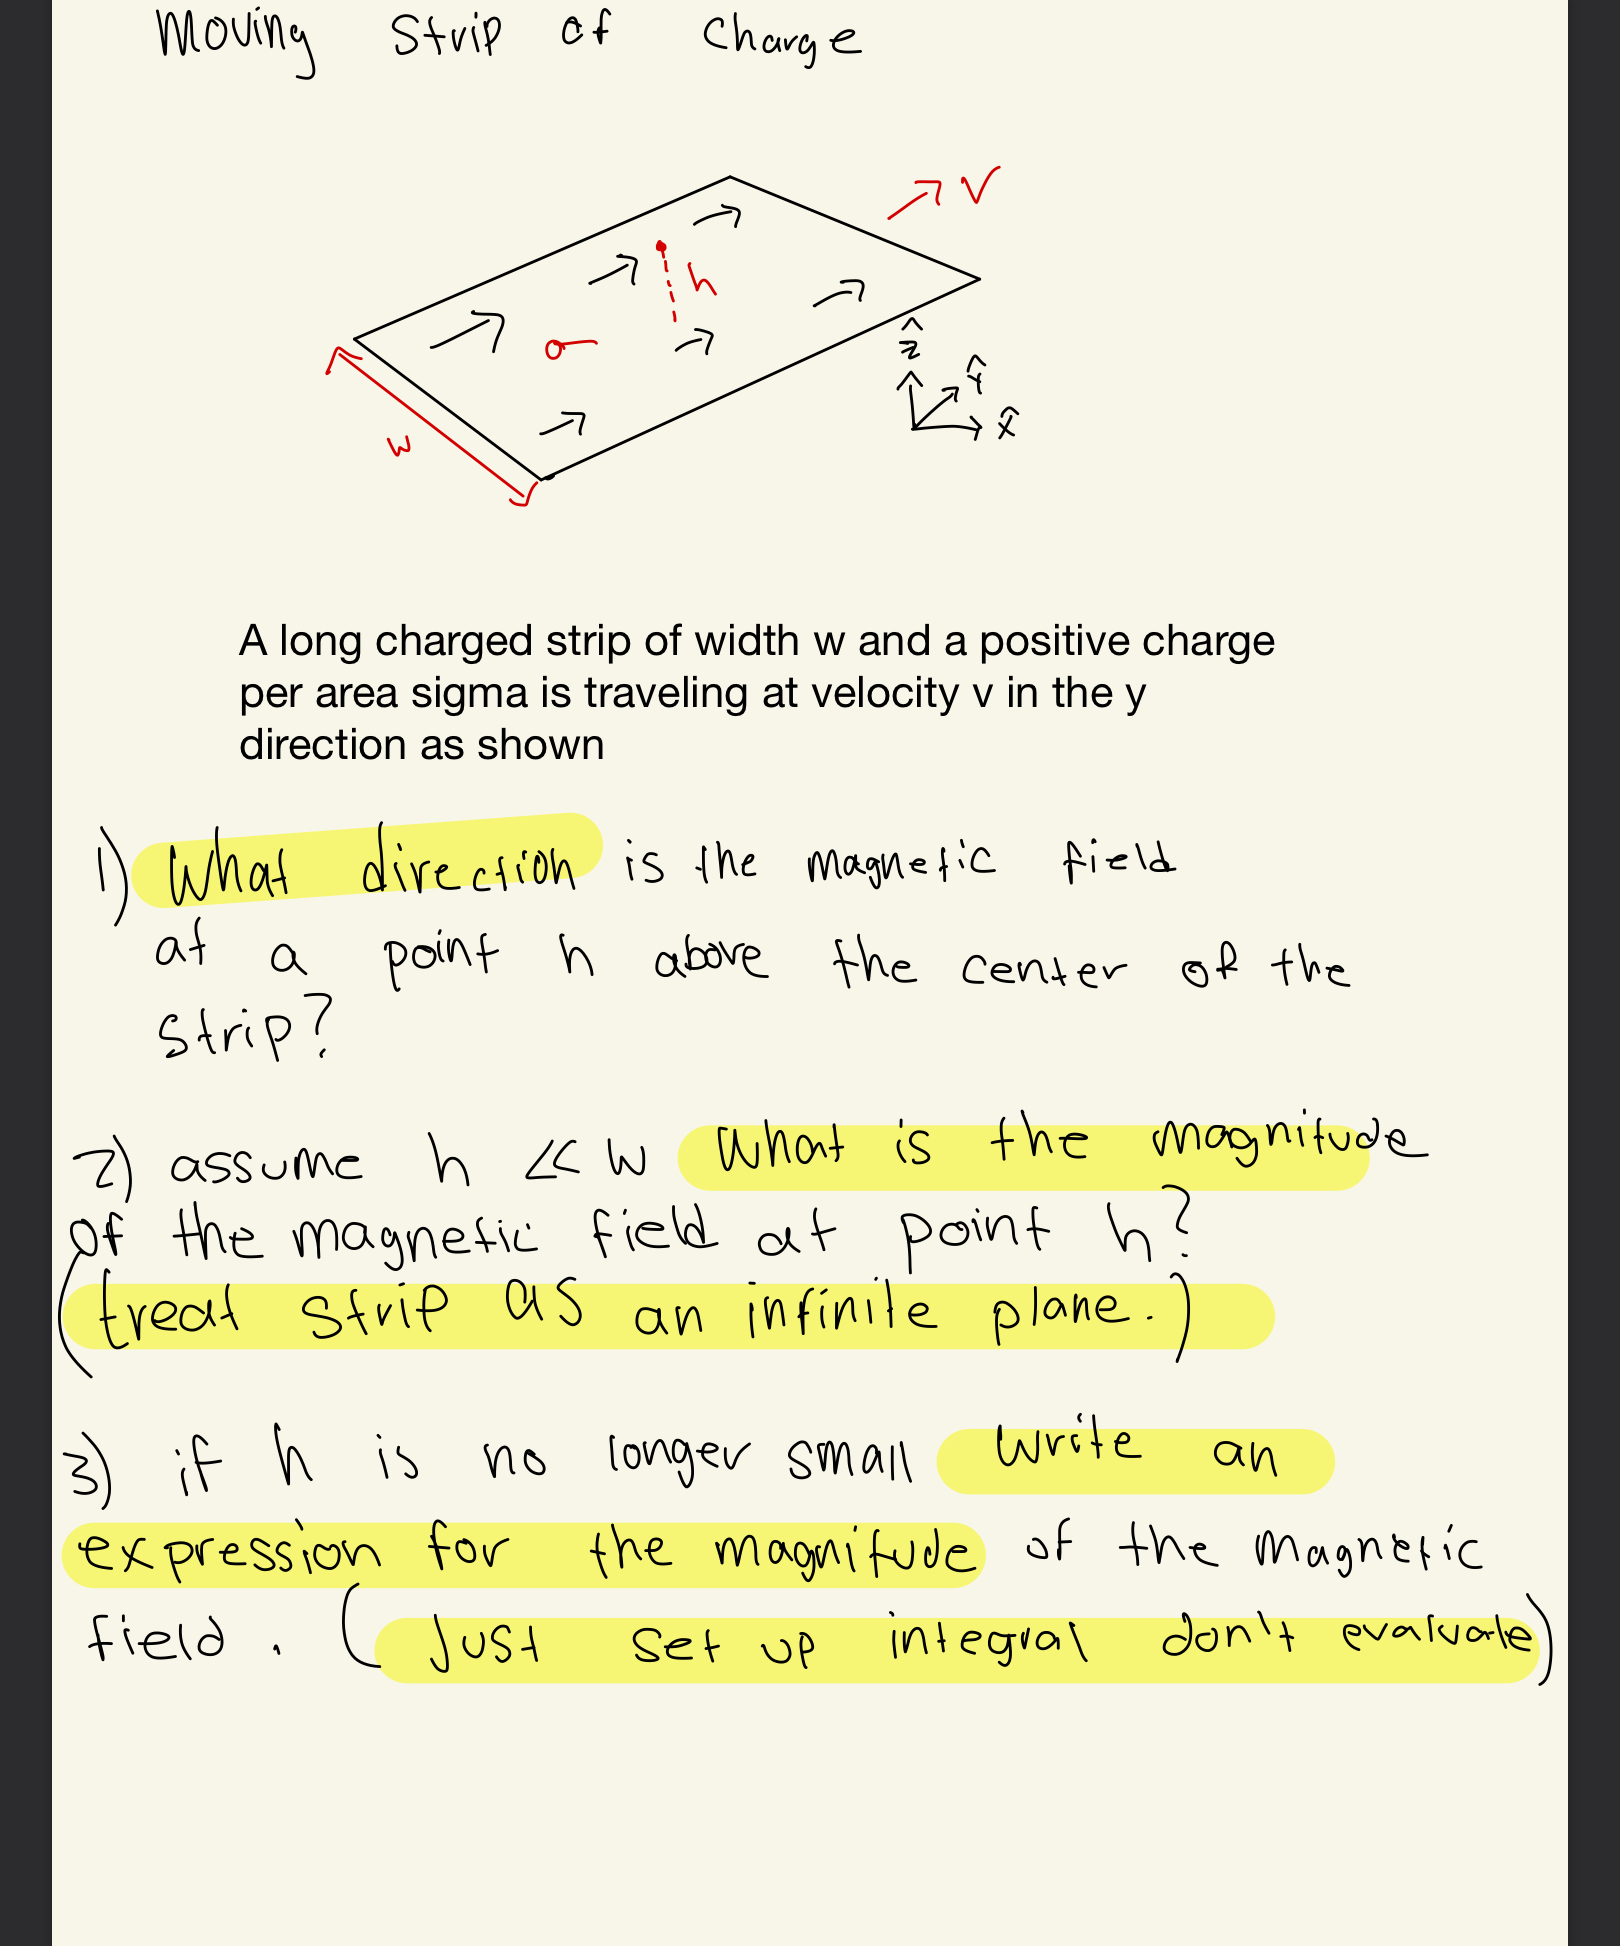 Moving Strip of Charge
V
h
σ
ẑ
ŷ
x̂
w
A long charged strip of width w and a positive charge
per area sigma is traveling at velocity v in the y
direction as shown
1) What direction is the magnetic field
at a point h above the center of the
strip?
2) assume h << w What is the magnitude
of the magnetic field at point h?
(treat strip as an infinite plane.)
3) if h is no longer small write an
expression for the magnitude of the magnetic
field. (Just set up integral don't evaluate)